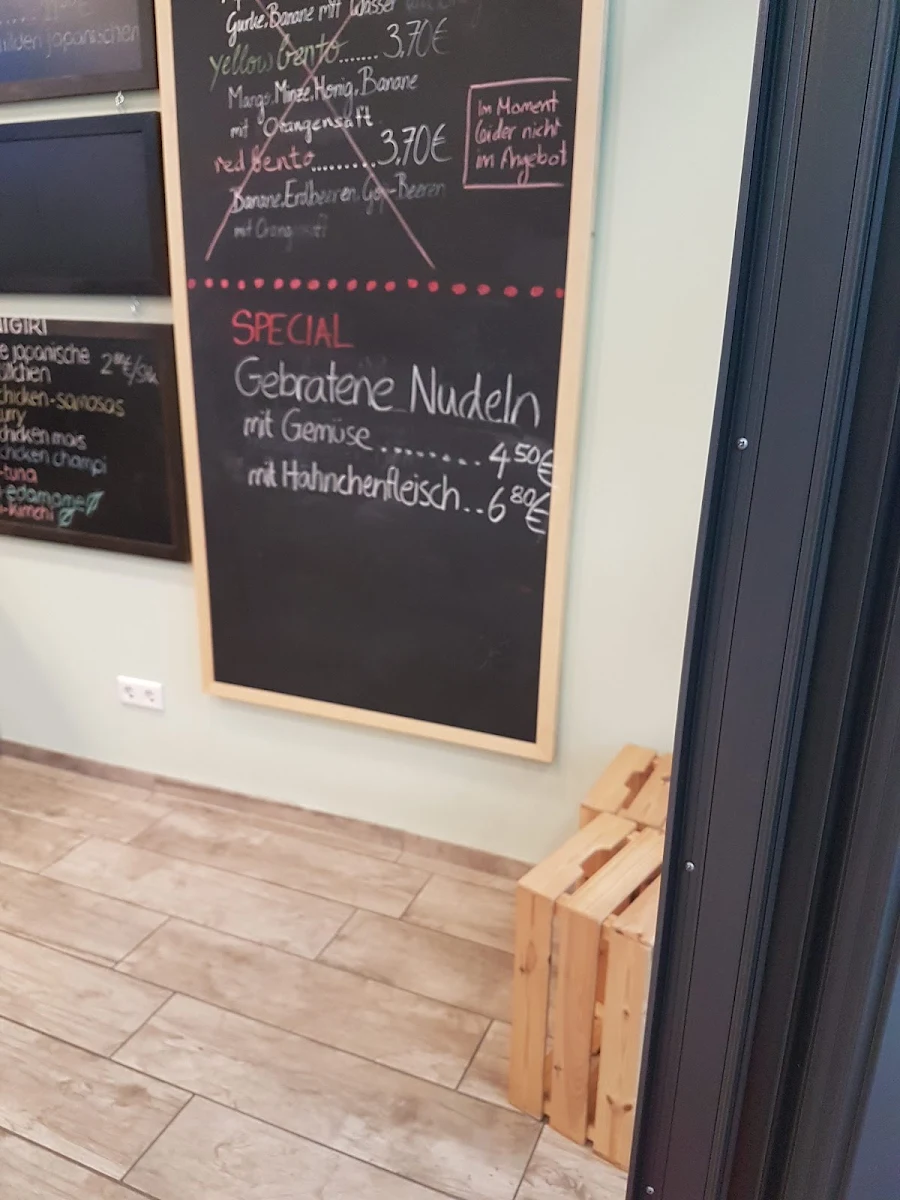 wilden japanischen
Gurke, Banane mit Wasser
yellow bento....... 3,70€
Mango, Minze, Honig, Banane
mit Orangensaft
red bento......... 3,70€
Banane, Erdbeeren, Goji-Beeren
mit Orangensaft
Im Moment
leider nicht
im Angebot
SPECIAL
Gebratene Nudeln
mit Gemüse......... 4 50€
mit Hähnchenfleisch.. 6 80€
IGIRI
e japanische
2
chicken-samosas
urry
chicken mais
chicken champi
-tuna
edamame
-kimchi